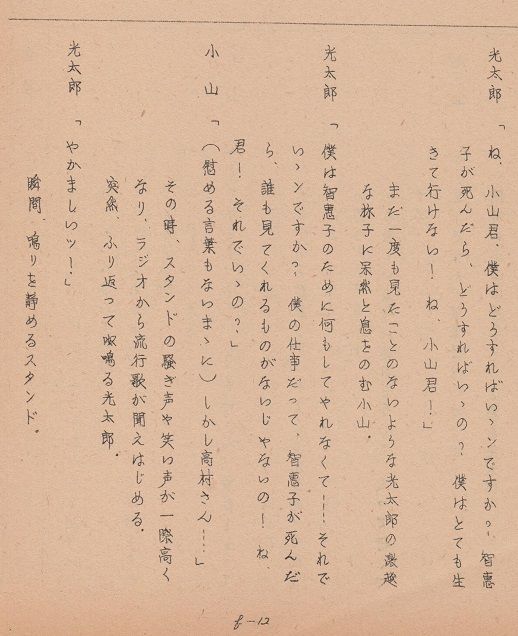 光太郎「ね、小山君、僕はどうすればいゝンですか？智恵
子が死んだら、どうすればいゝの？僕はとても生
きて行けない！ね、小山君！」
まだ一度も見たことのないような光太郎の激越
な様子に呆然と息をのむ小山。
光太郎「僕は智恵子のために何もしてやれなくて……それで
いゝンですか？僕の仕事だって、智恵子が死んだ
ら、誰も見てくれるものがないじゃないの！ね、
君！それでいゝの？」
小山「（慰める言葉もないまゝに）しかし高村さん……」
その時、スタンドの騒ぎ声や笑い声が一際高く
なり、ラジオから流行歌が聞えはじめる。
突然、ふり返って呶鳴る光太郎。
光太郎「やかましいッ！」
瞬間、鳴りを静めるスタンド。
f-12